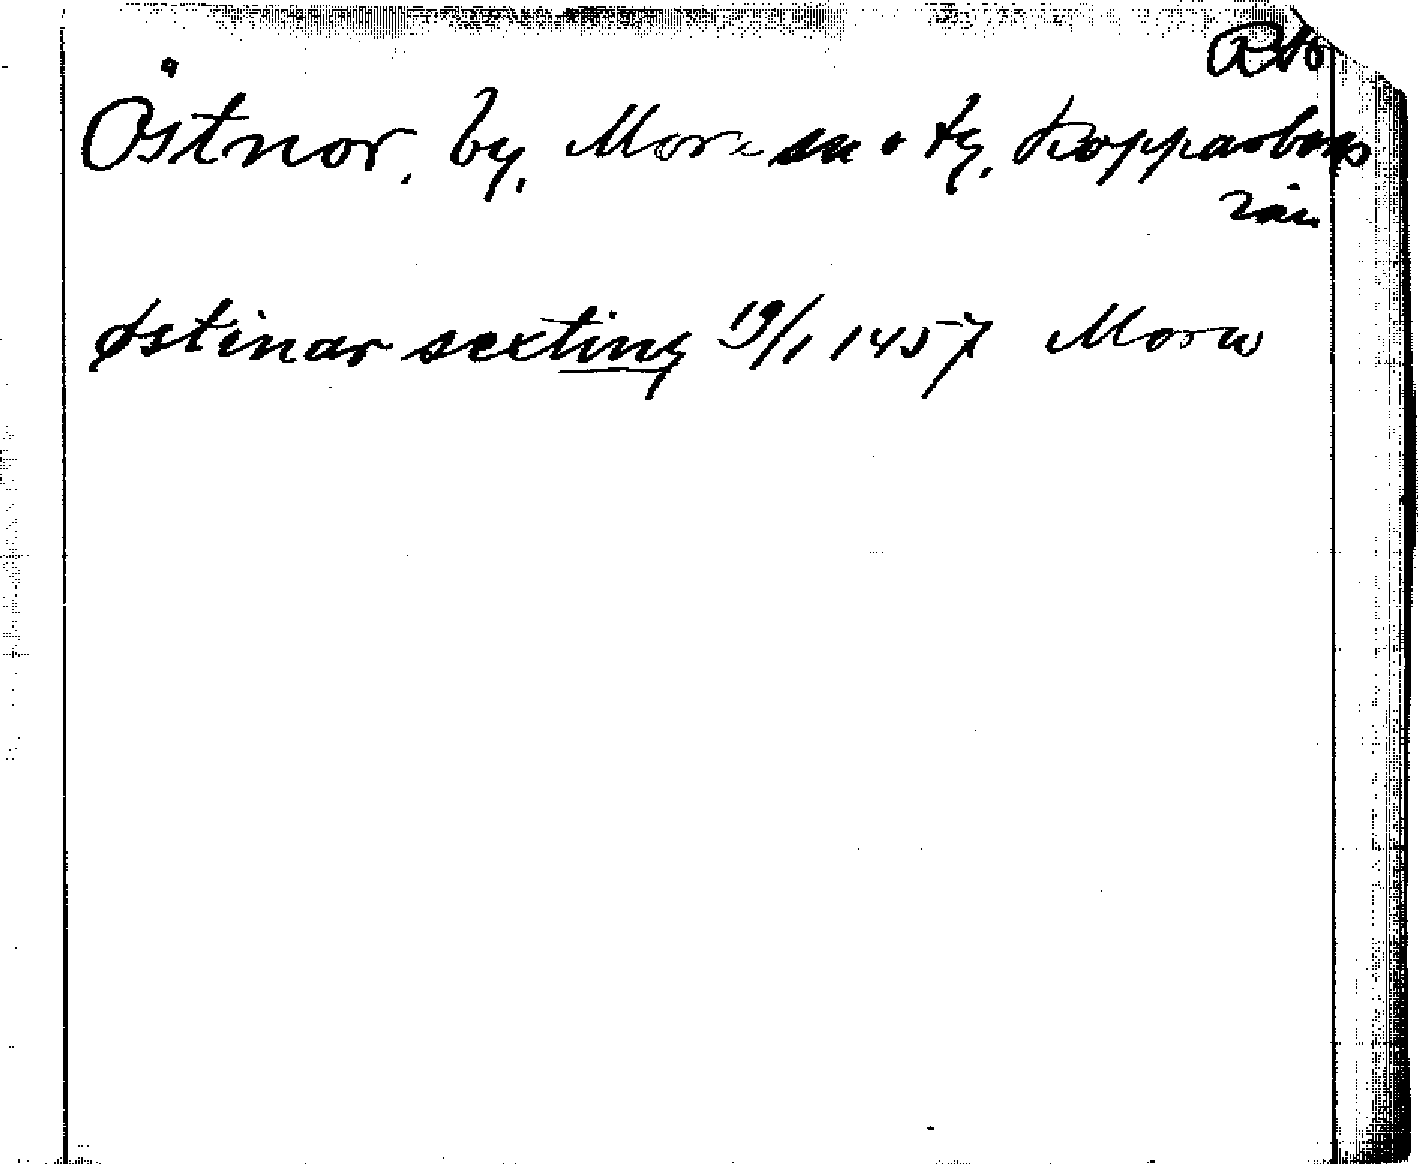 Östnor, by, Mora sn o tg. Kopparbergs
län
Østinar sexting 19/1 1457 Mora